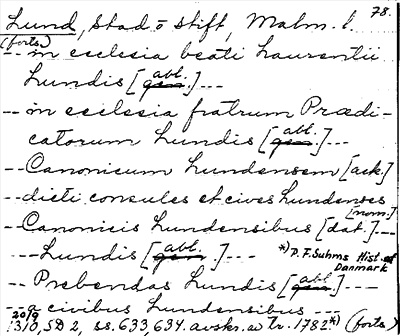 Lund, stad o stift, Malm. l. 78.
(forts.)
-- in ecclesia beati Laurentii
Lundis [gen. abl.] ---
-- in ecclesia fratrum Prædi-
catorum Lundis [gen. abl.] ---
-- Canonicum Lundensem [ack.]
-- dicti consules et cives Lundenses [nom.]
-- Canonicis Lundensibus [dat.] --
--- Lundis [gen. abl.] ---
*) P. F. Suhms Hist. af Danmark
-- Prebendas Lundis [gen. abl.] ---
-- a civibus Lundensibus ---
20/9 1310, SD 2, ss. 633, 634. avskr. av tr. 1782 *) (forts.)